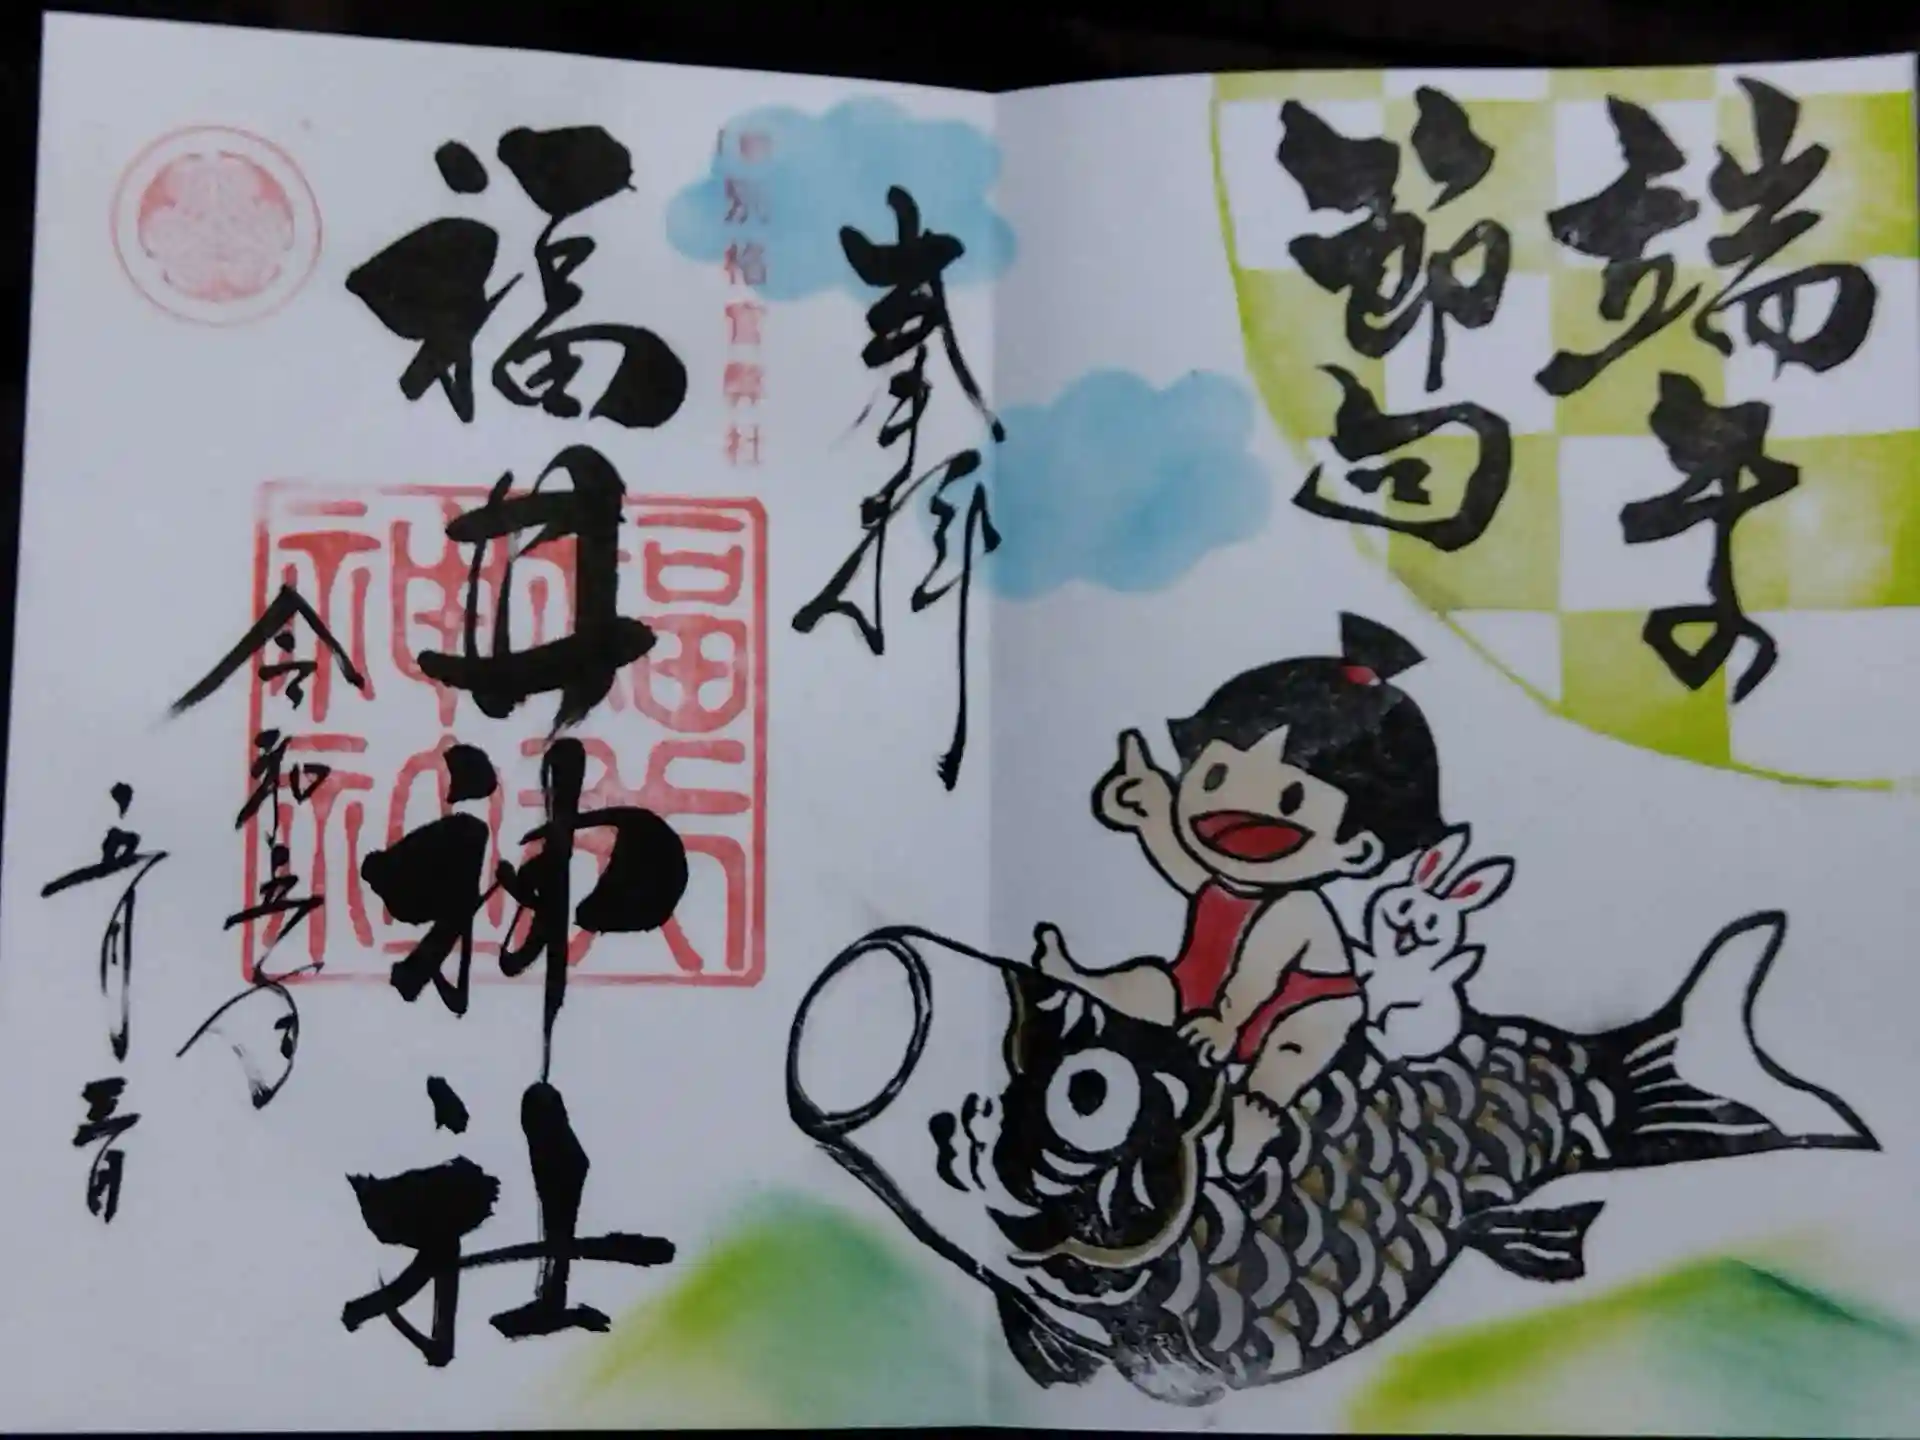 端午の
節句
奉拝
別格官幣社
福井神社
福井神社
令和五年
五月三日